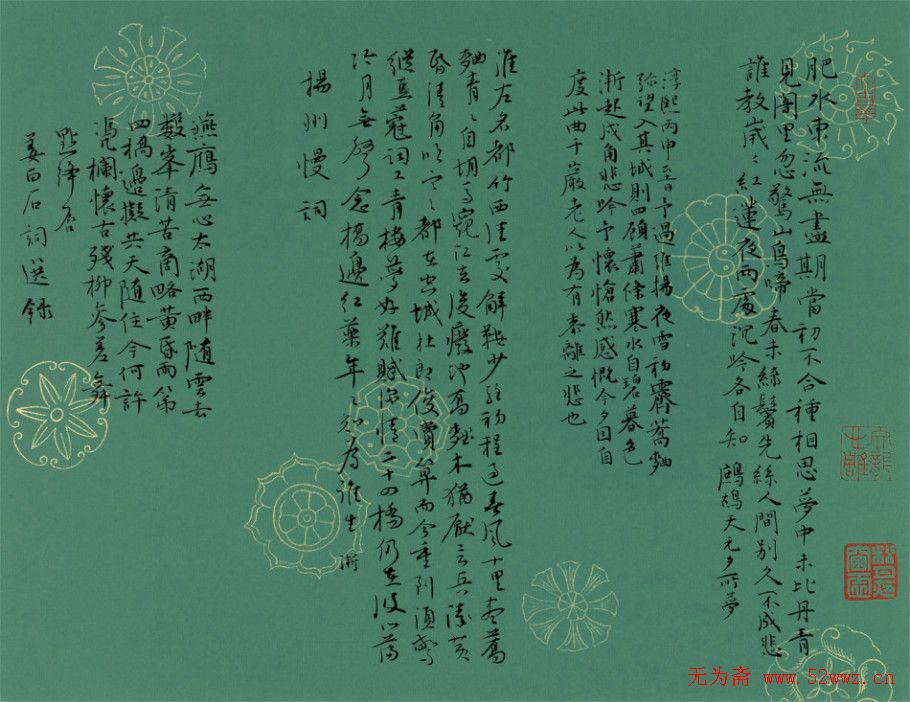 肥水東流無盡期當初不合種相思夢中未比丹青
見闇里忽驚山鳥啼 春未綠鬢先絲人間別久不成悲
誰教歲〻紅蓮夜兩處沉吟各自知 鷓鴣天元夕所夢
淳熙丙申至日予過維揚夜雪初霽薺麴
弥望入其城則四顧蕭條寒水自碧暮色
漸起戍角悲吟予懷愴然感慨今夕因自
度此曲千巖老人以為有黍離之悲也
淮左名都竹西佳處解鞍少駐初程過春風十里盡薺
麴青〻自胡馬窺江去後廢池喬木猶厭言兵漸黃
昏清角吹寒都在空城杜郎俊賞算而今重到須驚
縱豆蔻詞工青樓夢好難賦深情二十四橋仍在波心蕩
冷月無聲念橋邊紅藥年〻知為誰生 漸
揚州慢詞
燕鴈無心太湖西畔隨雲去
數峯清苦商略黃昏雨第
四橋邊擬共天隨住今何許
凭欄懷古殘柳參差舞
點絳唇
姜白石詞選錄
无为斋 www.52wwz.cn